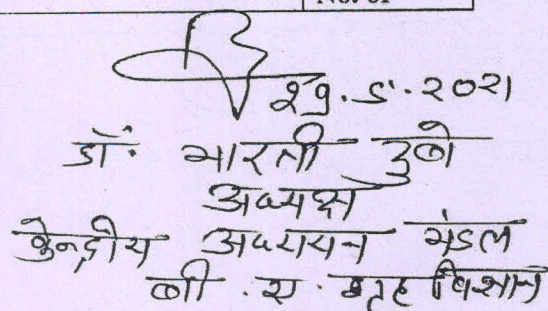 No. of
डॉ. भारती दुबे
अध्यक्ष
केन्द्रीय अध्ययन मंडल
बी. ए. गृह विज्ञान